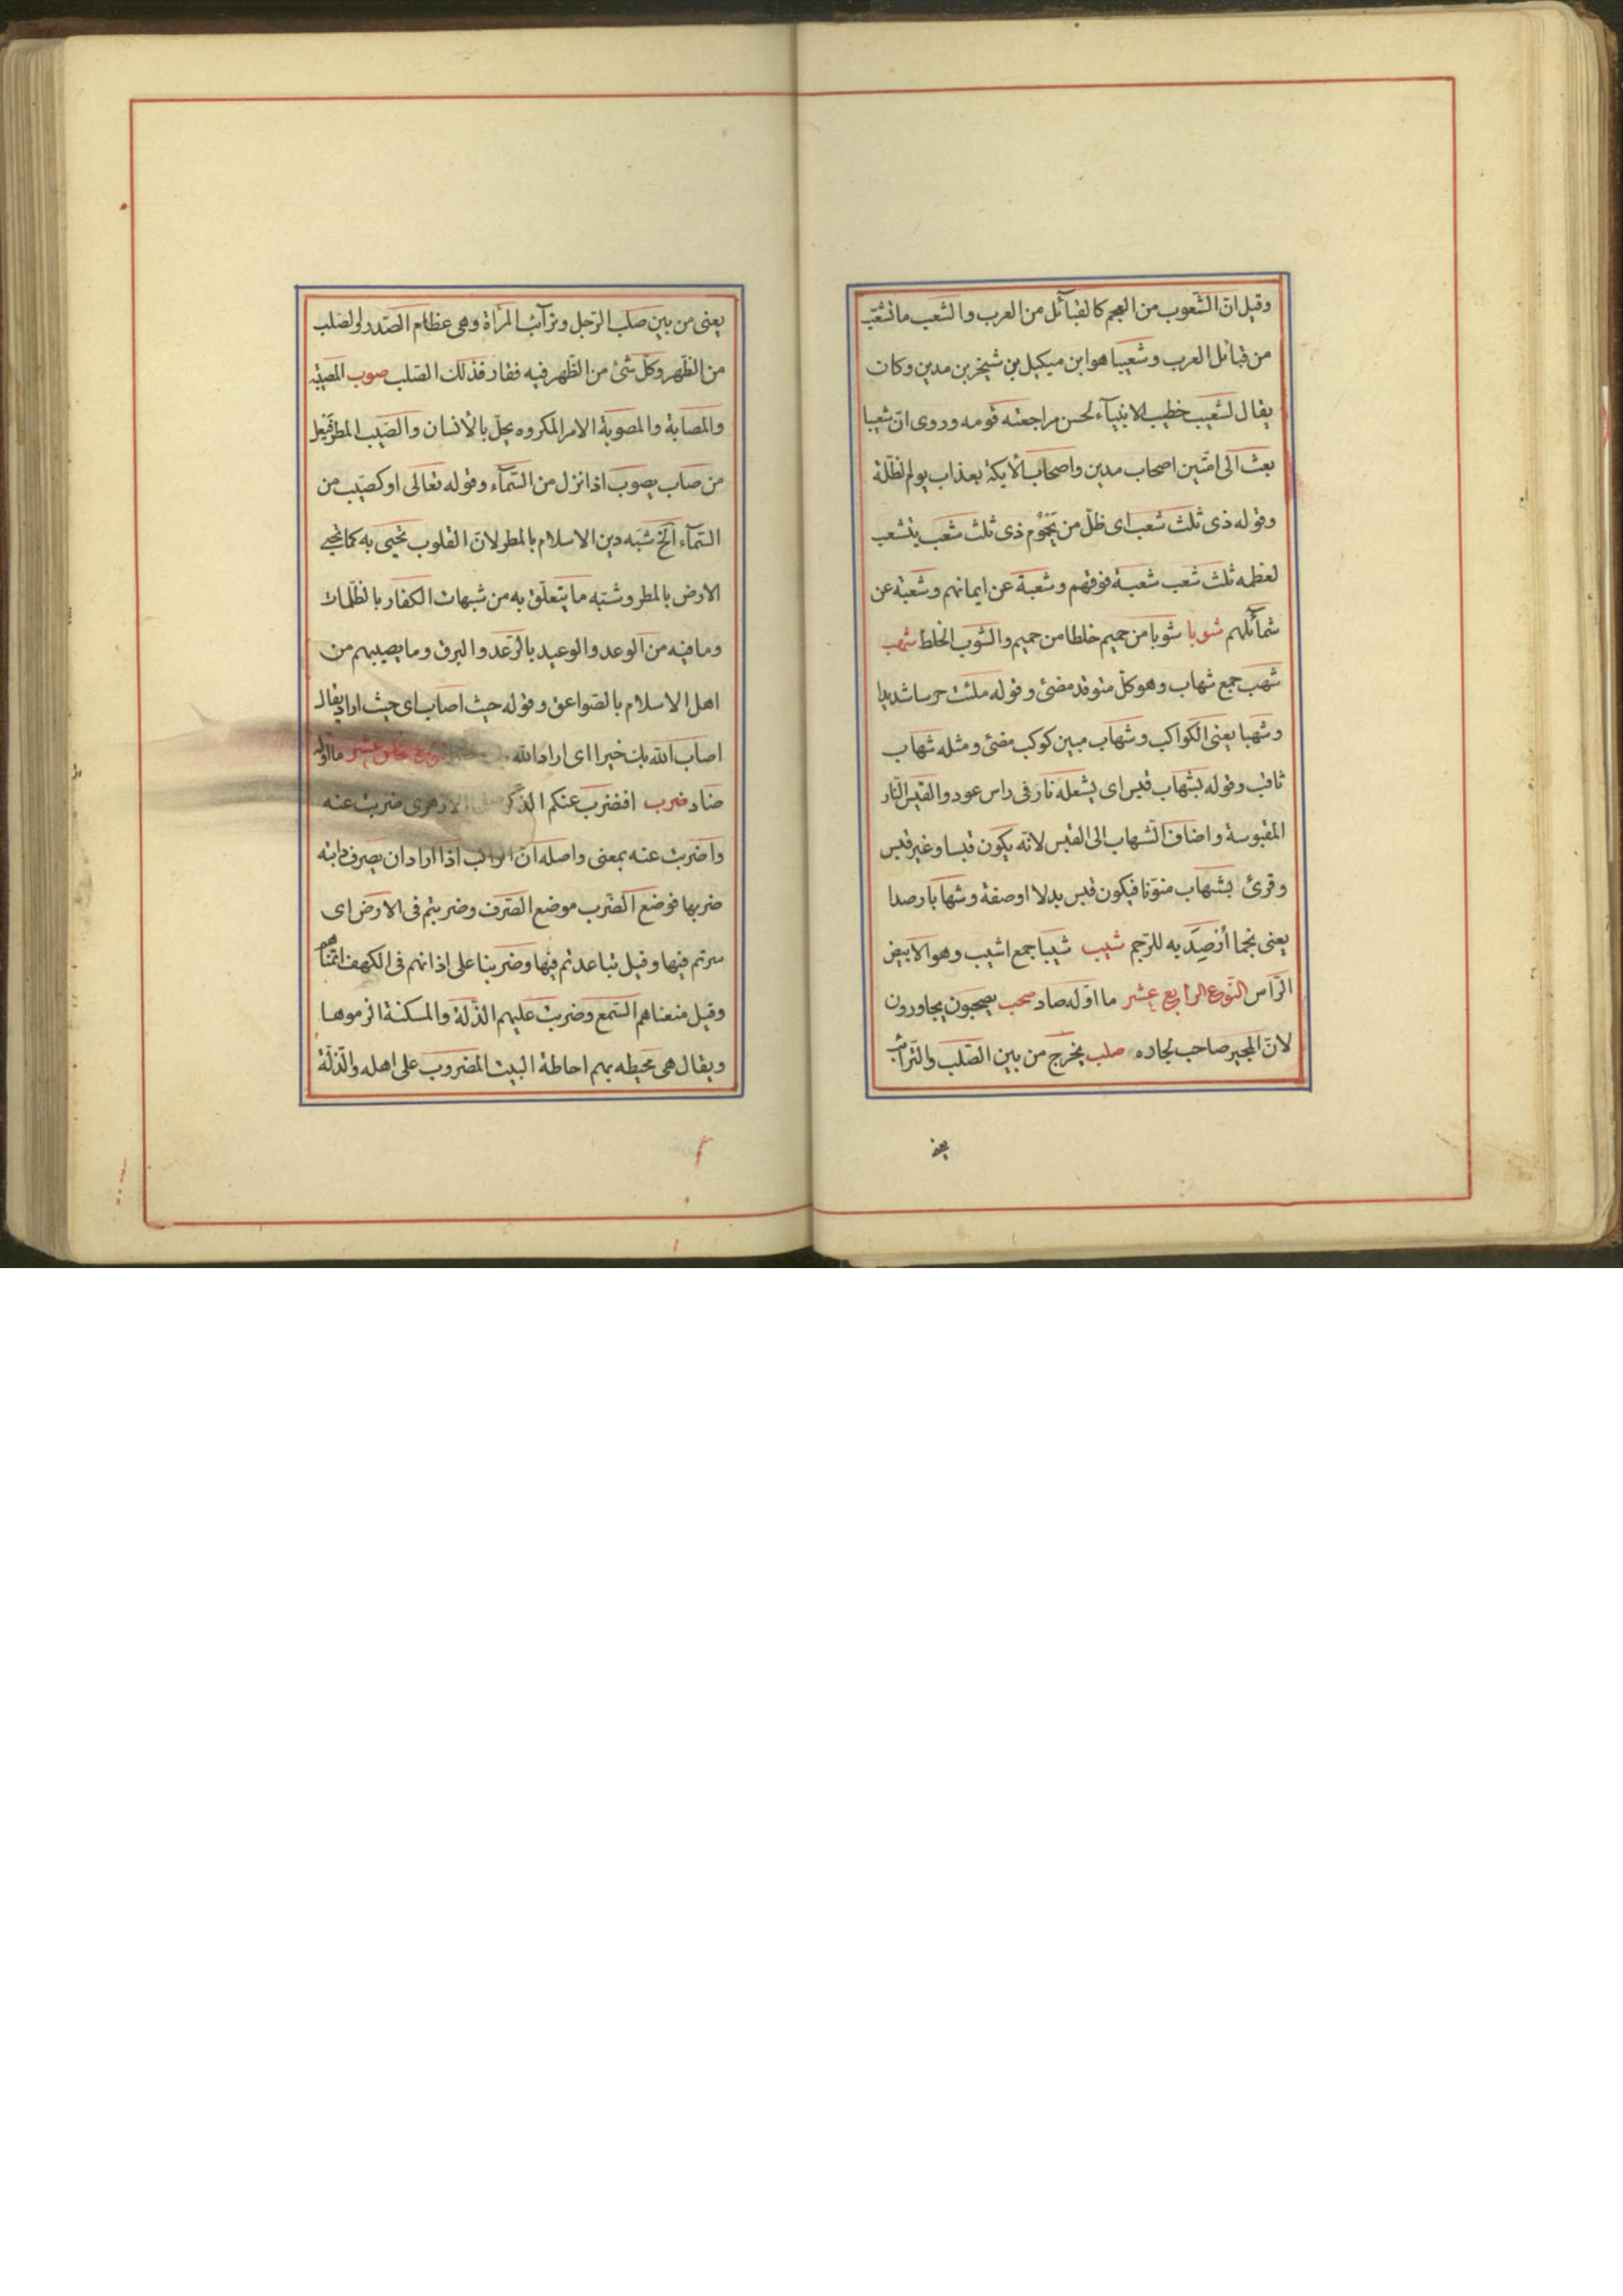 وقيل ان الشّعوب من العجم كالقبآئل من العرب والشعب ما تشعّب
من قبائل العرب وشعيبا هو ابن ميكيل بن شيخر بن مدين وكان
يقال لشعيب خطيب الانبيآء لحسن مراجعته قومه وروى انّ شعيبا
بعث الى امّتين اصحاب مدين واصحاب الأيكة بعذاب يوم الظلّة
وقوله ذى ثلث شعب اى ظلّ من يَحْمُوْم ذى ثلث شعب يتشعب
لعظمه ثلث شعب شعبة فوقهم وشعبة عن ايمانهم وشعبة عن
شمآئلهم شوبا شوبا من حميم خلطا من حميم والشوب الخلط شهب
شهب جمع شهاب وهو كلّ متوقد مضئ وقوله ملئت حرسا شديدا
وشهبا يعنى الكواكب وشهاب مبين كوكب مضئ ومثله شهاب
ثاقب وقوله بشهاب قبس اى بشعلة نار فى راس عود والقبس النّار
المقبوسة واضاف الشهاب الى القبس لانّه يكون قبسا وغير قبس
وقرئ بشهاب منوّنا فيكون قبس بدلا او صفة وشهابا رصدا
يعنى نجما أُرْصِدَ به للرّجم شيب شيبا جمع اشيب وهو الابيض
الرّاس النّوع الرابع عشر ما اوّله صاد صحب يصحبون يجاورون
لانّ المجير صاحب لجاره صلب يخرج من بين الصّلب والتّرائب
يعنى
يعنى من بين صلب الرّجل وترآئب المرأة وهى عظام الصّدر والصلب
من الظّهر وكلّ شئ من الظّهر فيه فقار فذلك الصّلب صوب المصيبة
والمصابة والمصوبة الامر المكروه يحلّ بالأنسان والصّيب المطر فيعل
من صاب يصوب اذا نزل من السّمآء وقوله تعالى او كصيّب من
السّمآء الخ شبّه دين الاسلام بالمطر لانّ القلوب تحيى به كما تحيى
الارض بالمطر وشبّه ما يتعلّق به من شبهات الكفار بالظلمات
وما فيه من الوعد والوعيد بالرّعد والبرق وما يصيبهم من
اهل الاسلام بالصّواعق وقوله حيث اصاب اى حيث اراد يقال
اصاب الله بك خيرا اى اراد الله النوع الخامس عشر ما اوّله
ضاد ضرب افنضرب عنكم الذّكر الازهرى ضربت عنه
واضربت عنه بمعنى واصله انّ الراكب اذا اراد ان يصرف دابته
ضربها فوضع الضّرب موضع الصّرف وضربتم فى الارض اى
سرتم فيها وقيل تباعدتم فيها وضربنا على اذانهم فى الكهف انمناهم
وقيل منعناهم السّمع وضربت عليهم الذّلة والمسكنة الزموها
ويقال هى محيطه بهم احاطة البيت المضروب على اهله والذّلّة